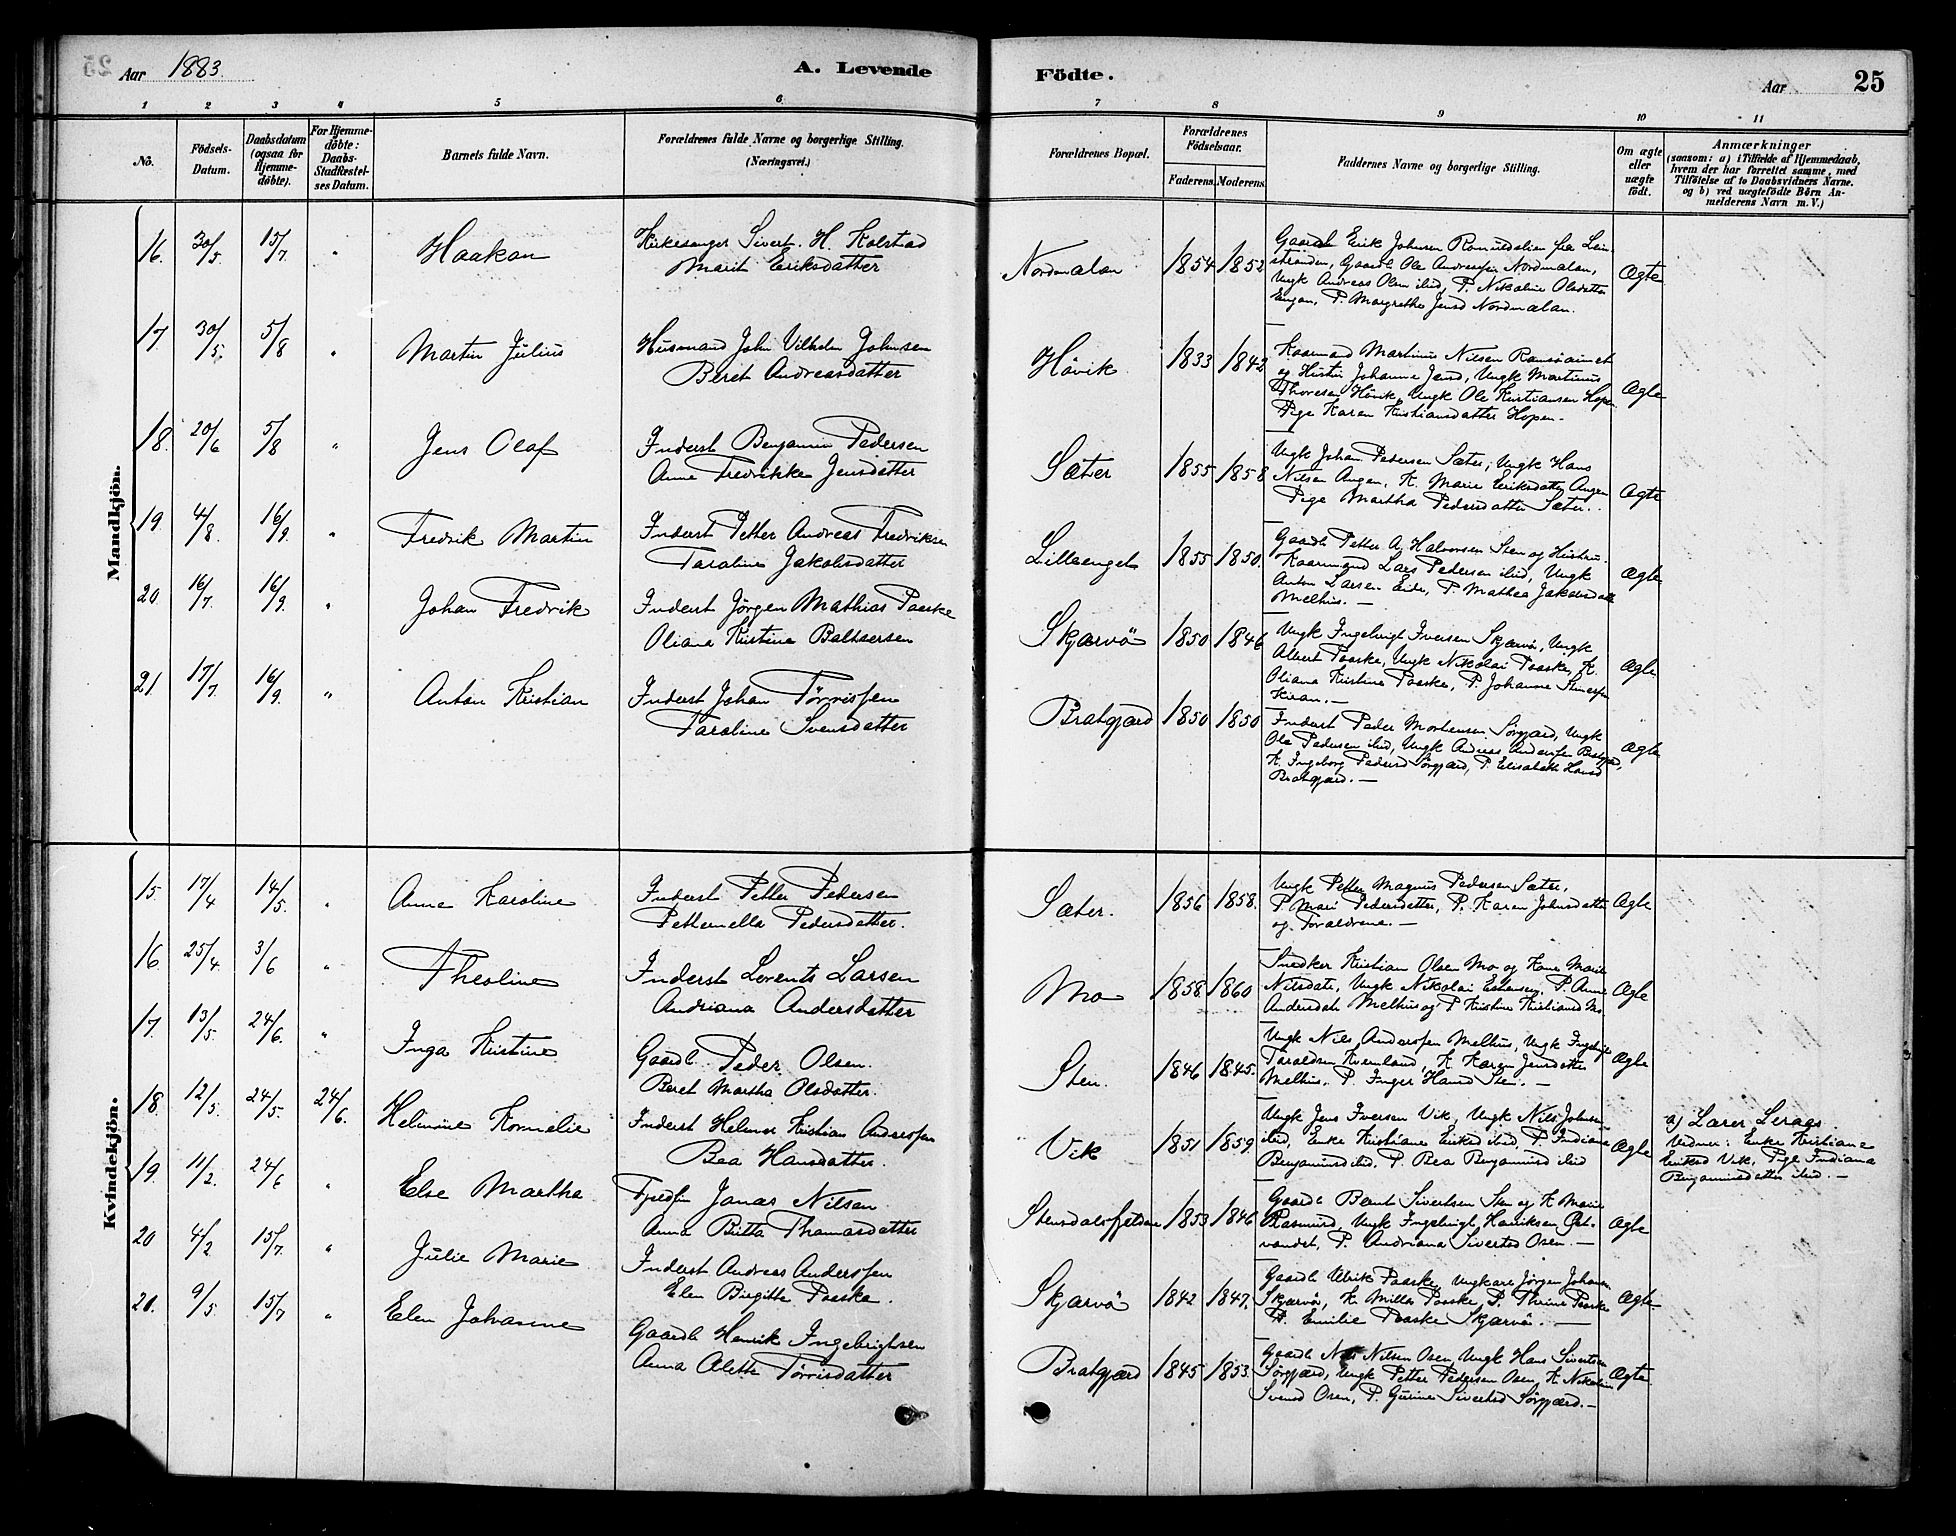 Aar 1883.
A. Levende
Födte.
Aar
25
1 2 3 4 5 6 7 8 9 10 11
No.
Födsels-Datum.
Daabsdatum (ogsaa for Hjemme-döbte).
For Hjemme-döbte: Daabs-Stadfæstel-ses Datum.
Barnets fulde Navn.
Forældrenes fulde Navne og borgerlige Stilling. (Næringsvei.)
Forældrenes Bopæl.
Forældrenes Födselsaar.
Faderens. Moderens.
Faddernes Navne og borgerlige Stilling.
Om ægte eller uægte födt.
Anmærkninger
(saasom: a) i Tilfælde af Hjemmedaab, hvem der har forrettet samme, med Tilföielse af to Daabsvidners Navne. og b) ved uægtefödte Börn An-melderens Navn m. V.)
Mandkjön.
16. 30/5 15/7 " Haakon
Kirkesanger Sivert. H. Kolstad
Marit Eriksdatter
Nordmalan 1854 1852
Gaardb Erik Johnsen Romuldalien fra Lein-
stranden, Gaardb Ole Andressen Nordmalan,
Ungk Andreas Olsen ibid, P. Nikoline Olsdatter
Engan, P. Margrethe Jensd Nordmalan.
Ægte
17 30/5. 5/8 " Martin Julius
Husmand John Vilhelm Johnsen
Beret Andreasdatter
Hövik 1833 1842
Kaarmand Martinus Nilsen
og Hustru Johanne Jensd, Ungk Martinus
Thoresen Hövik, Ungk Ole Kristiansen Hopen
Pige Karen Kristiansdatter Hopen.
Ægte
18. 20/6 5/8 " Jens Olaf
Inderst Benjamin Pedersen
Anne Fredrikke Jensdatter
Sæter 1855 1858
Ungk Johan Pedersen Sæter, Ungk Hans
Nilsen Angen, K. Marie Eriksdatter Angen
Pige Martha Pedersdatter Sæter.
Ægte
19 4/8. 16/9. " Fredrik Martin
Inderst Petter Andreas Fredriksen
Karoline Jakobsdatter
Lilleenget 1855 1850.
Gaardb Petter A. Halvorsen Sten og Hustru.
Kaarmand Lars Pedersen ibid, Ungk
Anton Larsen Eide, P. Mathea Jakobsdatt
Melhus. —
Ægte
20. 16/7. 16/9. " Johan Fredrik
Inderst Jörgen Mathias Paaske
Oliana Kristine Baltsersen
Skjærvö 1850 1846
Ungk Ingebrigt Iversen Skjærvö, Ungk
Albert Paaske, Ungk Nikolai Paaske, K.
Oliana Kristine Paaske, P. Johanne
Kiran. —
Ægte
21. 17/7 16/9. " Anton Kristian
Inderst Johan Törrissen
Karoline Svensdatter
Bratgjærd 1850 1850
Inderst Peder Mortensen Sörgjærd, Ungk
Ole Pedersen ibid, Ungk Andreas Andersen Bratgjærd,
K. Ingeborg Pedersd Sörgjærd, P. Elisabeth Hansd
Bratgjærd. —
Ægte
Kvindekjön.
15. 17/4 14/5. " Anne Karoline
Inderst Petter Pedersen
Petternella Pedersdatter.
Sæter. 1856 1858.
Ungk Petter Magnus Pedersen Sæter,
P. Mari Pedersdatter, P. Karen Johnsdatter
og Forældrene. —
Ægte
16. 25/4. 3/6 " Theoline
Inderst Lorents Larsen
Andriana Andersdatter
Mo 1858. 1860
Snedker Kristian Olsen Mo og Kone Marie
Nilsdatt, Ungk Nikolai Estensen, P. Anne
Andersdatt Melhus og P. Kristine Kristiansd Mo.
Ægte
17. 13/5. 24/6. " Inga Kristine
Gaardb. Peder Olsen.
Beret Martha Olsdatter.
Sten. 1846 1845.
Ungk Nils Anderssen Melhus, Ungk Ingebrigt
Taraldsen Kvernland, K. Karen Jensdatter
Melhus. P. Inger Hansd Sten. —
Ægte
18. 12/5. 24/5. 24/6. Helmine Kornelie
Inderst Helmer Kristian Anderssen
Bea Hansdatter.
Vik 1851 1859.
Ungk Jens Iversen Vik, Ungk Nils Johnsen
ibid, Enke Kristiane Eriksd ibid, P. Indiana
Benjaminsd ibid. P. Bea Benjaminsd ibid
Ægte
a) Lærer Leraas.
Vidner: Enke Kristiane
Eriksd Vik, Pige Indiana
Benjaminsdatter ibid. —
19. 11/2. 24/6 " Else Martha
Jonas Nilsen
Anna Britta Thomasdatter
Stensdalsfjeldet 1853 1846
Gaardb Bernt Sivertsen Sten og K Marie
Rasmusd, Ungk Ingebrigt Henriksen
vandet, P. Andriana Sivertsd Osen. —
Ægte
20 4/2 15/7. " Julie Marie
Inderst Andreas Anderssen
Elen Birgitte Paaske.
Skjærvö 1842 1847.
Gaardb Ulrik Paaske, Ungkarl Jörgen Johansen
Skjærvö, K. Milla Paaske, P. Thrine Paaske
P. Emilie Paaske Skjærvö. —
Ægte
21. 9/5 15/7 " Elen Johanne
Gaardb Henrik Ingebrigtsen
Anna Aletta Törrisdatter
Bratgjærd 1845 1853.
Gaardb Nils Nilsen Osen, Ungk Hans Sivertsen
Sörgjærd, Ungk Petter Pedersen Osen, K Nikoline
Svensd Osen, P. Gurine Sivertsd Sörgjærd. —
Ægte